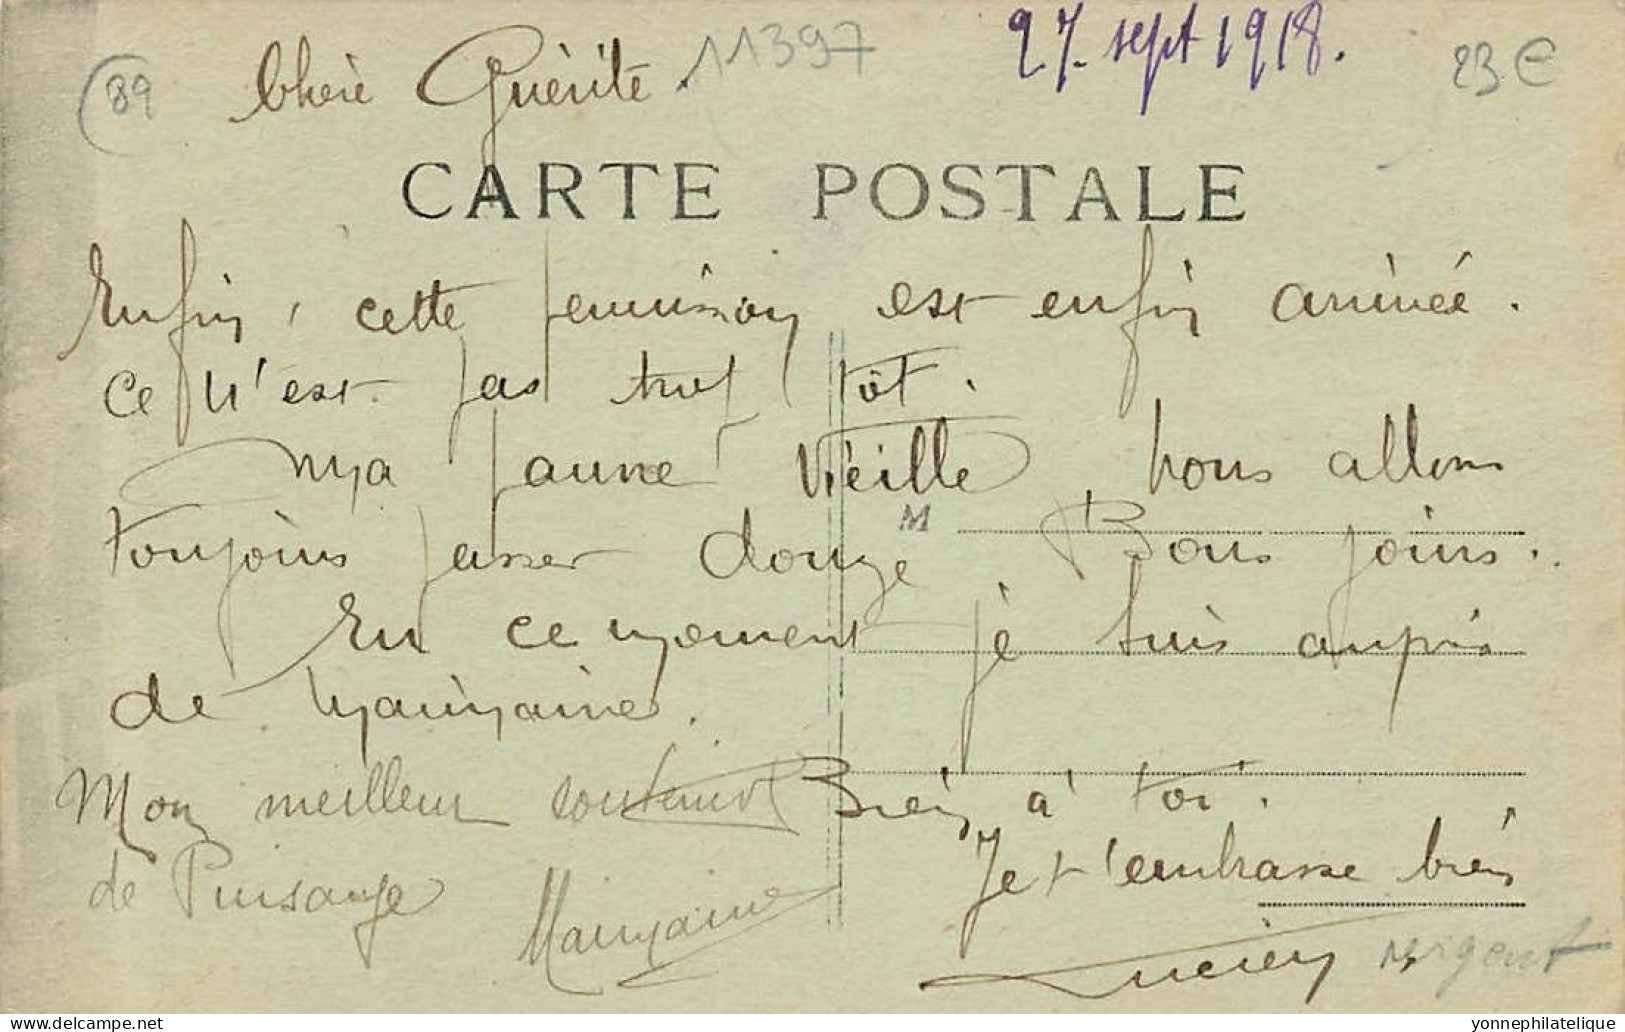 89
Chère Guérite
11397
27. sept 1918.
23 €
CARTE POSTALE
Enfin, cette permission est enfin arrivée.
Ce n'est pas trop tôt.
ma pauvre vieille nous allons
toujours passer douze Bons jours.
M
En ce moment je suis auprès
de Marraine.
Mon meilleur souvenir
de Puisaye
Marraine
Bien à toi.
Je t'embrasse bien
Lucien
yonnephilatelie
www.delcampe.net